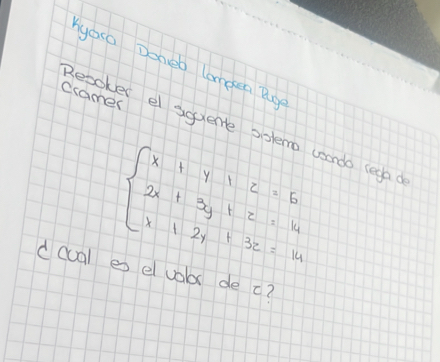 Kyara Daniela
Resolver el siguiente sistema usando regla de
Cramer
x + y + z = 6
2x + 3y + z = 14
x + 2y + 3z = 14
¿Cual es el valor de z?